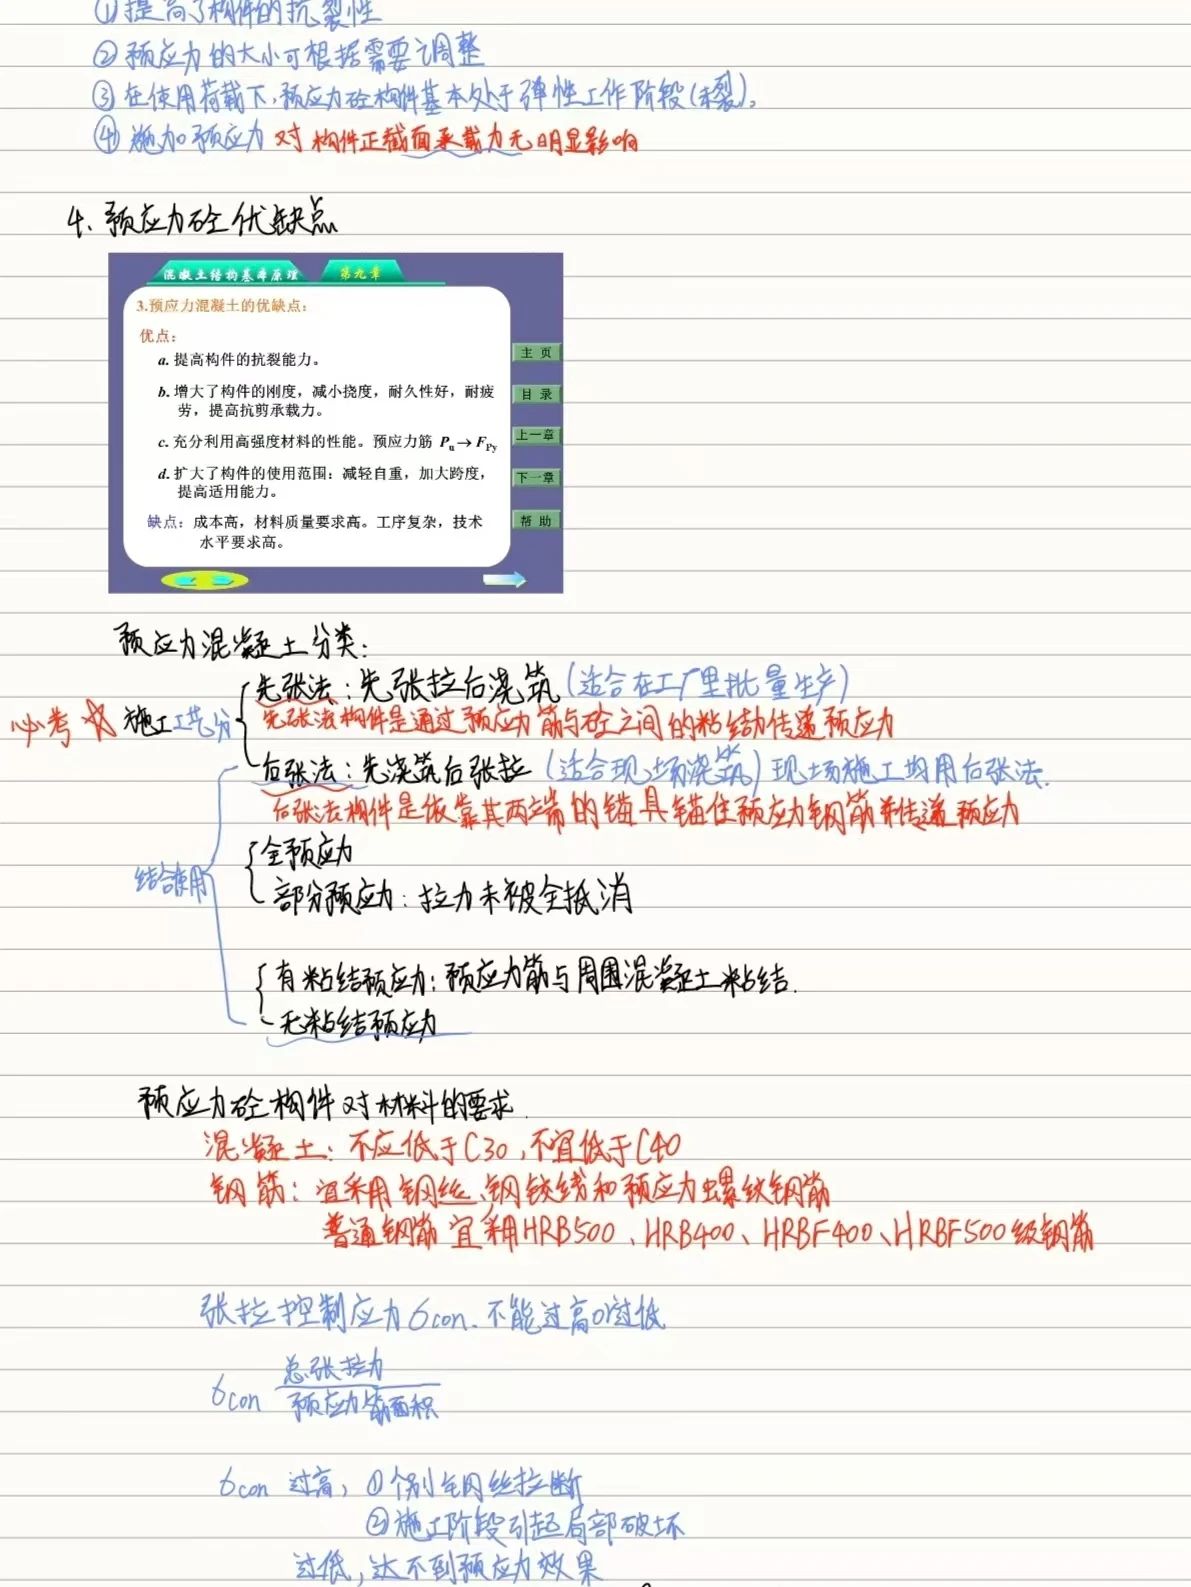 ①提高了构件的抗裂性
②预应力的大小可根据需要调整
③在使用荷载下,预应力砼构件基本处于弹性工作阶段(未裂)。
④施加预应力对构件正截面承载力无明显影响
4、预应力砼优缺点
混凝土结构基本原理 第九章
3.预应力混凝土的优缺点:
优点:
a. 提高构件的抗裂能力。
主 页
b. 增大了构件的刚度，减小挠度，耐久性好，耐疲
目 录
劳，提高抗剪承载力。
上一章
c. 充分利用高强度材料的性能。预应力筋 Pu → FPy
d. 扩大了构件的使用范围：减轻自重，加大跨度，
下一章
提高适用能力。
缺点：成本高，材料质量要求高。工序复杂，技术
帮 助
水平要求高。
预应力混凝土分类:
先张法:先张拉后浇筑(适合在工厂里批量生产)
必考☆ 施工工艺分
先张法构件是通过预应力筋与砼之间的粘结力传递预应力
后张法:先浇筑后张拉(适合现场浇筑)现场施工均用后张法.
后张法构件是依靠其两端的锚具锚住预应力钢筋并传递预应力
全预应力
结合使用
部分预应力:拉力未被全抵消
有粘结预应力:预应力筋与周围混凝土粘结.
无粘结预应力
预应力砼构件对材料的要求.
混凝土:不应低于C30,不宜低于C40
钢筋:宜采用钢丝、钢铰线和预应力螺纹钢筋
普通钢筋宜采用HRB500、HRB400、HRBF400、HRBF500级钢筋
张拉控制应力σcon.不能过高or过低
总张拉力
σcon
预应力筋面积
σcon 过高,①个别钢丝拉断
②施工阶段引起局部破坏
过低,达不到预应力效果